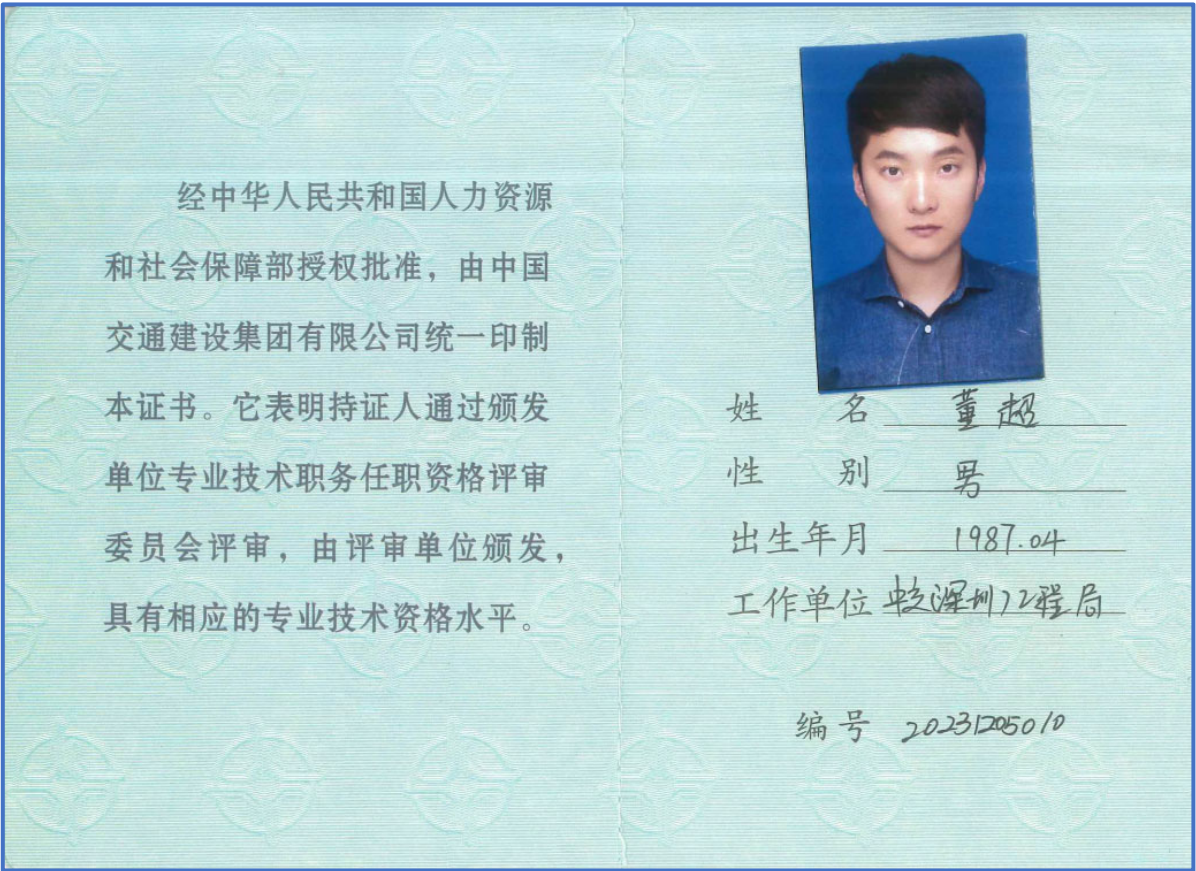 经中华人民共和国人力资源
和社会保障部授权批准，由中国
交通建设集团有限公司统一印制
本证书。它表明持证人通过颁发
单位专业技术职务任职资格评审
委员会评审，由评审单位颁发，
具有相应的专业技术资格水平。
姓名 董超
性别 男
出生年月 1987.04
工作单位 中交深圳工程局
编号 20231205010